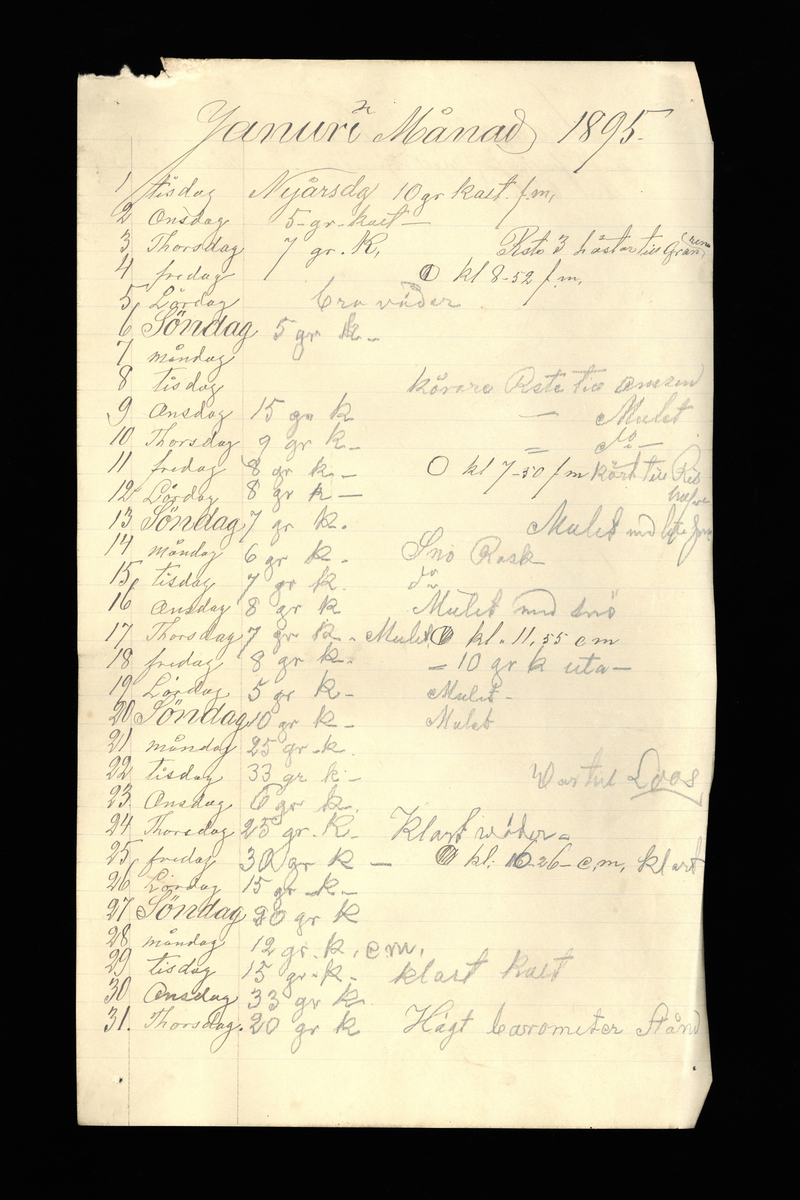 Januri Månad 1895.
1 tisdag Nyårsdg 10 gr kalt. f.m,
2 Onsdag 5-gr-kalt-
3 Thorsdag 7 gr. K, Rste 3 hästar till
4 fredag kl 8-52 f.m,
5, Lördag bra väder
6 Söndag 5 gr k-
7 måndag
8 tisdag körare Rste till
9 Onsdag 15 gr k — Mulet
10 Thorsdag 9 gr k- = do -
11 fredag 8 gr k- O kl 7-50 f m kört till
12 Lördag 8 gr k —
13 Söndag 7 gr k. Mulet md
14 måndag 6 gr k - Snö Rask
15, tisdag 7 gr k. do
16 Onsdag 8 gr k Mulet md snö
17 Thorsdag 7 gr k - Mulet kl. 11,55 e m
18 fredag 8 gr k- - 10 gr k uta-
19 Lördag 5 gr k- Mulet-
20 Söndag 10 gr k- Mulet
21 måndag 25 gr-k.
22 tisdag 33 gr k- Loos
23 Onsdag 6 gr k.
24 Thorsdag 25 gr. K- Klart väder-
25, fredag 30 gr k — kl: 10-26- e,m, klart
26 Lördag 15 gr-k-
27 Söndag 30 gr k
28 måndag 12 gr. k, e m,
29 tisdag 15 gr-k- klart kalt
30 Onsdag 33 gr k
31. Thorsdag. 20 gr k Högt barometer Stånd